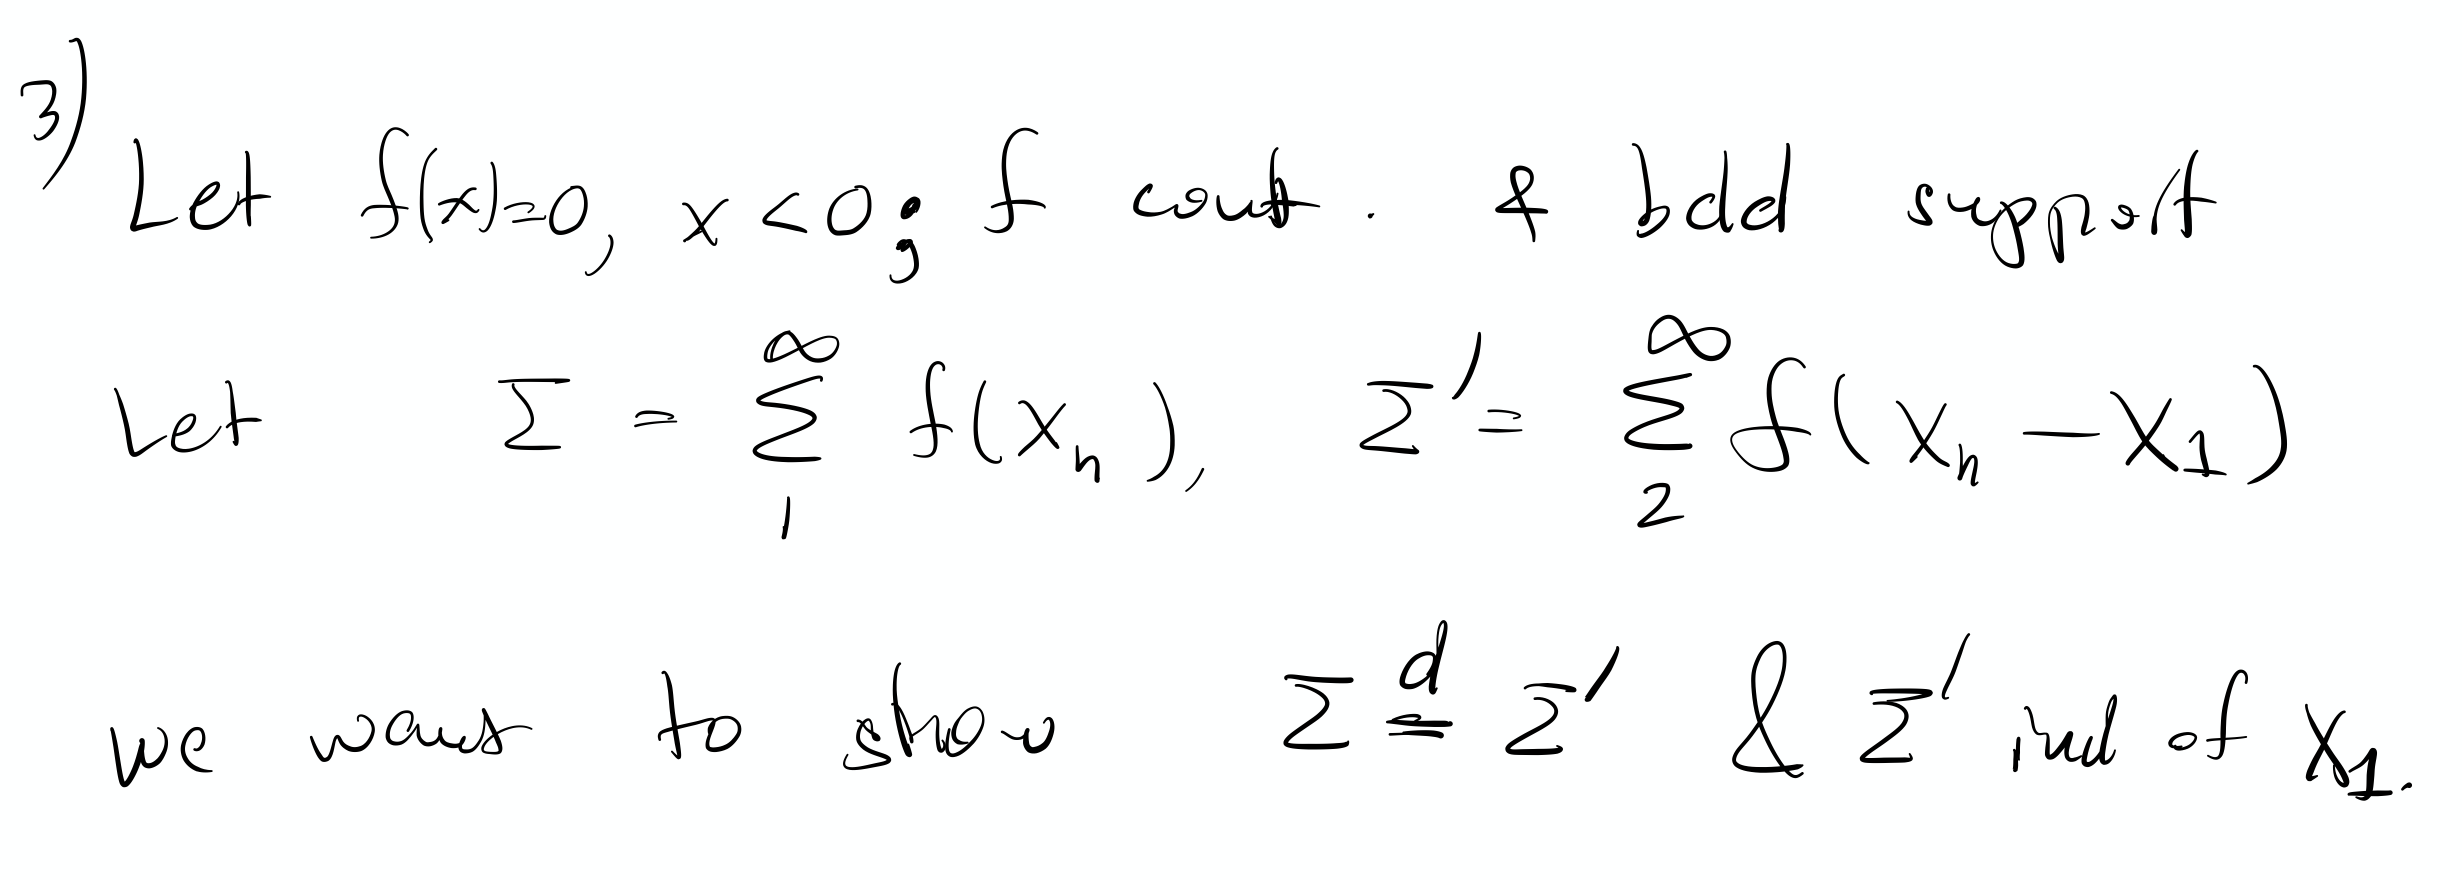 3) Let f(x)=0, x<0; f cont. & bdd support
Let Σ = ∑_1^∞ f(X_n), Σ' = ∑_2^∞ f(X_n − X_1)
we want to show Σ =^d Σ' & Σ' ind of X_1.